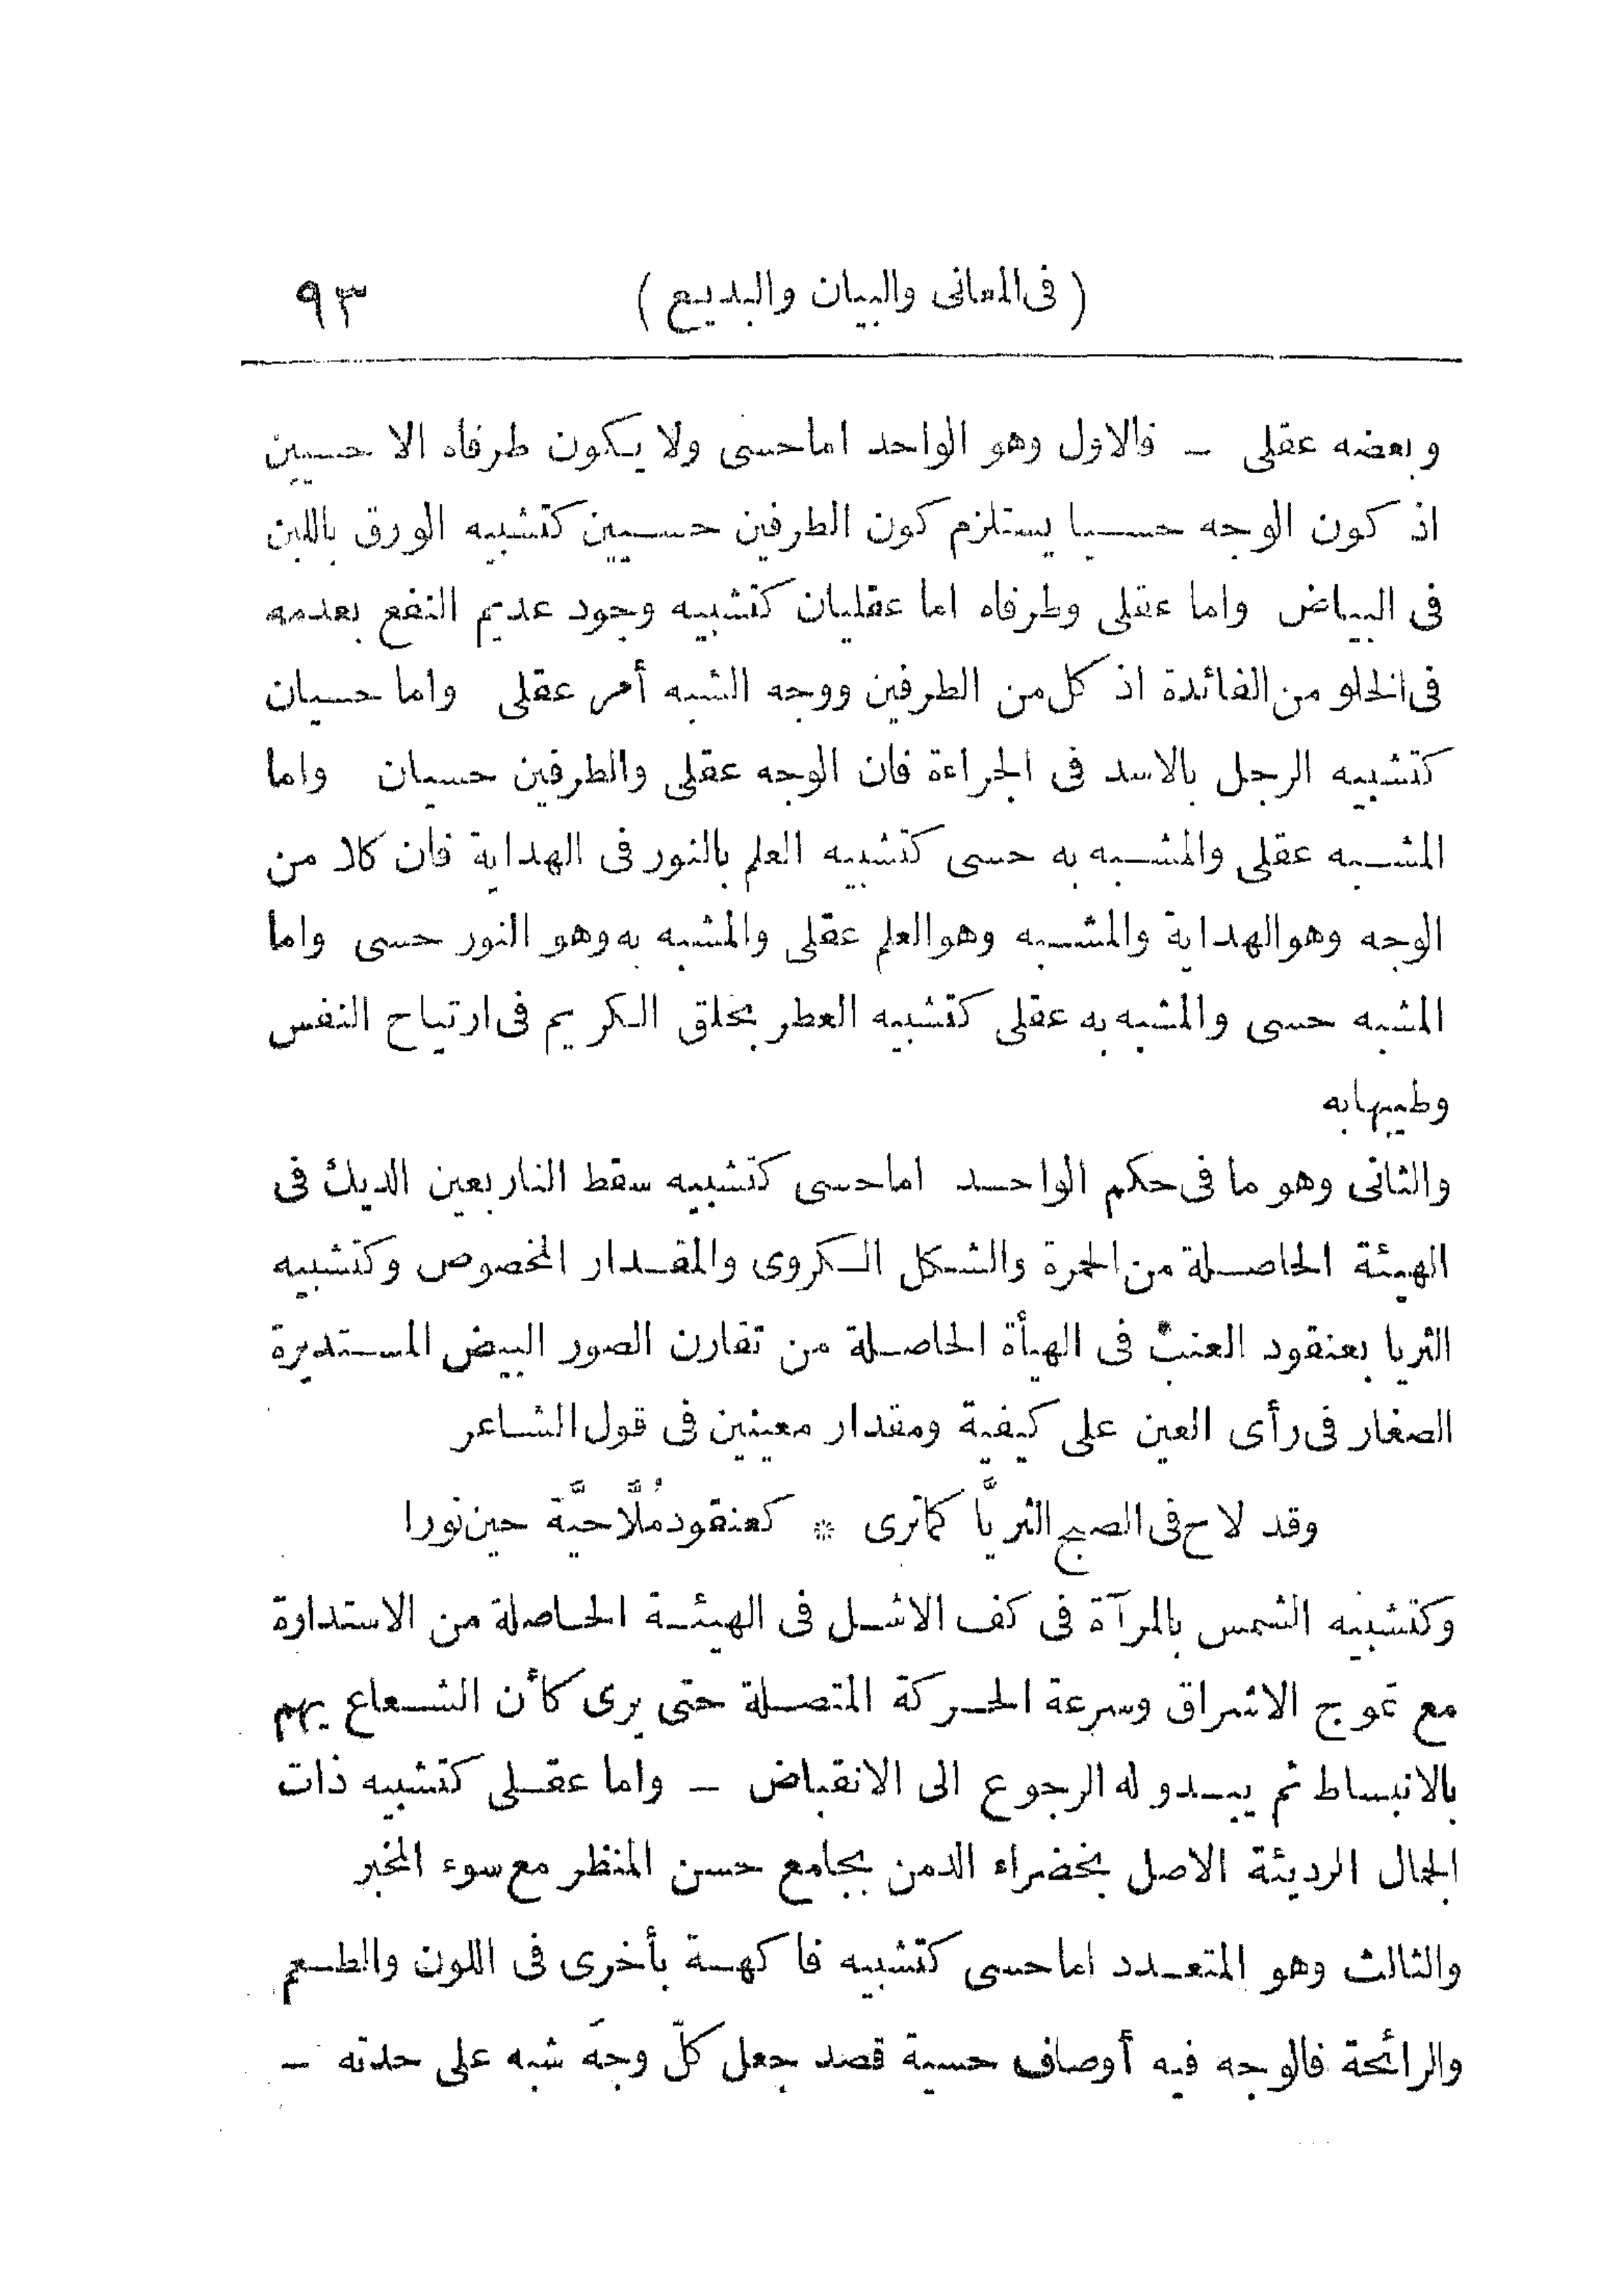 ( فى المعانى والبيان والبديع ) ٩٣
وبعضه عقلى – فالاول وهو الواحد اما حسى ولا يكون طرفاه الا حسيين
اذ كون الوجه حسيا يستلزم كون الطرفين حسيين كتشبيه الورق باللبن
فى البياض واما عقلى وطرفاه اما عقليان كتشبيه وجود عديم النفع بعدمه
فى الخلو من الفائدة اذ كل من الطرفين ووجه الشبه أمر عقلى واما حسيان
كتشبيه الرجل بالاسد فى الجراءة فان الوجه عقلى والطرفين حسيان واما
المشبه عقلى والمشبه به حسى كتشبيه العلم بالنور فى الهداية فان كلا من
الوجه وهو الهداية والمشبه وهو العلم عقلى والمشبه به وهو النور حسى واما
المشبه حسى والمشبه به عقلى كتشبيه العطر بخلق الكريم فى ارتياح النفس
وطيبها به
والثانى وهو ما فى حكم الواحد اما حسى كتشبيه سقط النار بعين الديك فى
الهيئة الحاصلة من الحمرة والشكل الكروى والمقدار المخصوص وكتشبيه
الثريا بعنقود العنب فى الهيأة الحاصلة من تقارن الصور البيض المستديرة
الصغار فى رأى العين على كيفية ومقدار معينين فى قول الشاعر
وقد لاح فى الصبح الثريَّا كما ترى * كعنقود مُلَّاحيَّة حين نورا
وكتشبيه الشمس بالمرآة فى كف الاشل فى الهيئة الحاصلة من الاستدارة
مع تموج الاشراق وسرعة الحركة المتصلة حتى يرى كأن الشعاع يهم
بالانبساط ثم يبدو له الرجوع الى الانقباض – واما عقلى كتشبيه ذات
الجمال الرديئة الاصل بخضراء الدمن بجامع حسن المنظر مع سوء المخبر
والثالث وهو المتعدد اما حسى كتشبيه فاكهة بأخرى فى اللون والطعم
والرائحة فالوجه فيه أوصاف حسية قصد جعل كلّ وجهَ شبه على حدته –